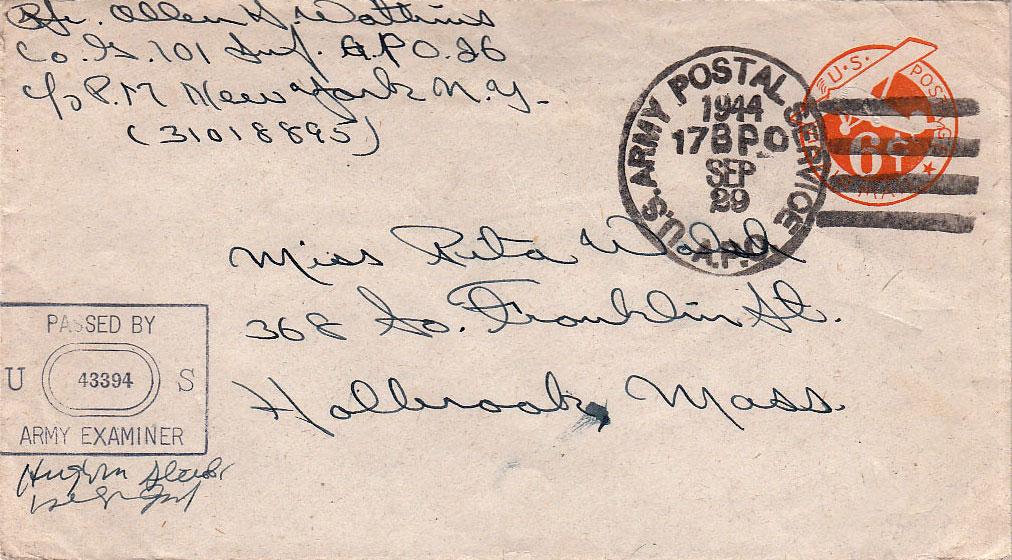 Pfc. Allen H. Watkins
Co. G. 101 Inf. A.P.O. 26
c/o P.M New York N.Y.
(31018895)
U.S. ARMY POSTAL SERVICE
1944
17 BPO
SEP
29
A.P.O.
U.S. POSTAGE
6¢
Miss Rita Walsh
368 So. Franklin St.
Holbrook, Mass.
PASSED BY
U 43394 S
ARMY EXAMINER